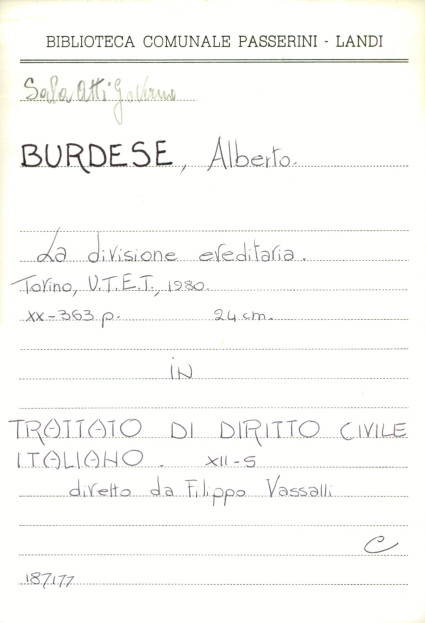 BIBLIOTECA COMUNALE PASSERINI - LANDI
Sala Atti Governo
BURDESE, Alberto.
La divisione ereditaria.
Torino, U.T.E.T., 1980.
XX-363 p. 24 cm.
IN
TRATTATO DI DIRITTO CIVILE
ITALIANO. XII-5
diretto da Filippo Vassalli
C
187177